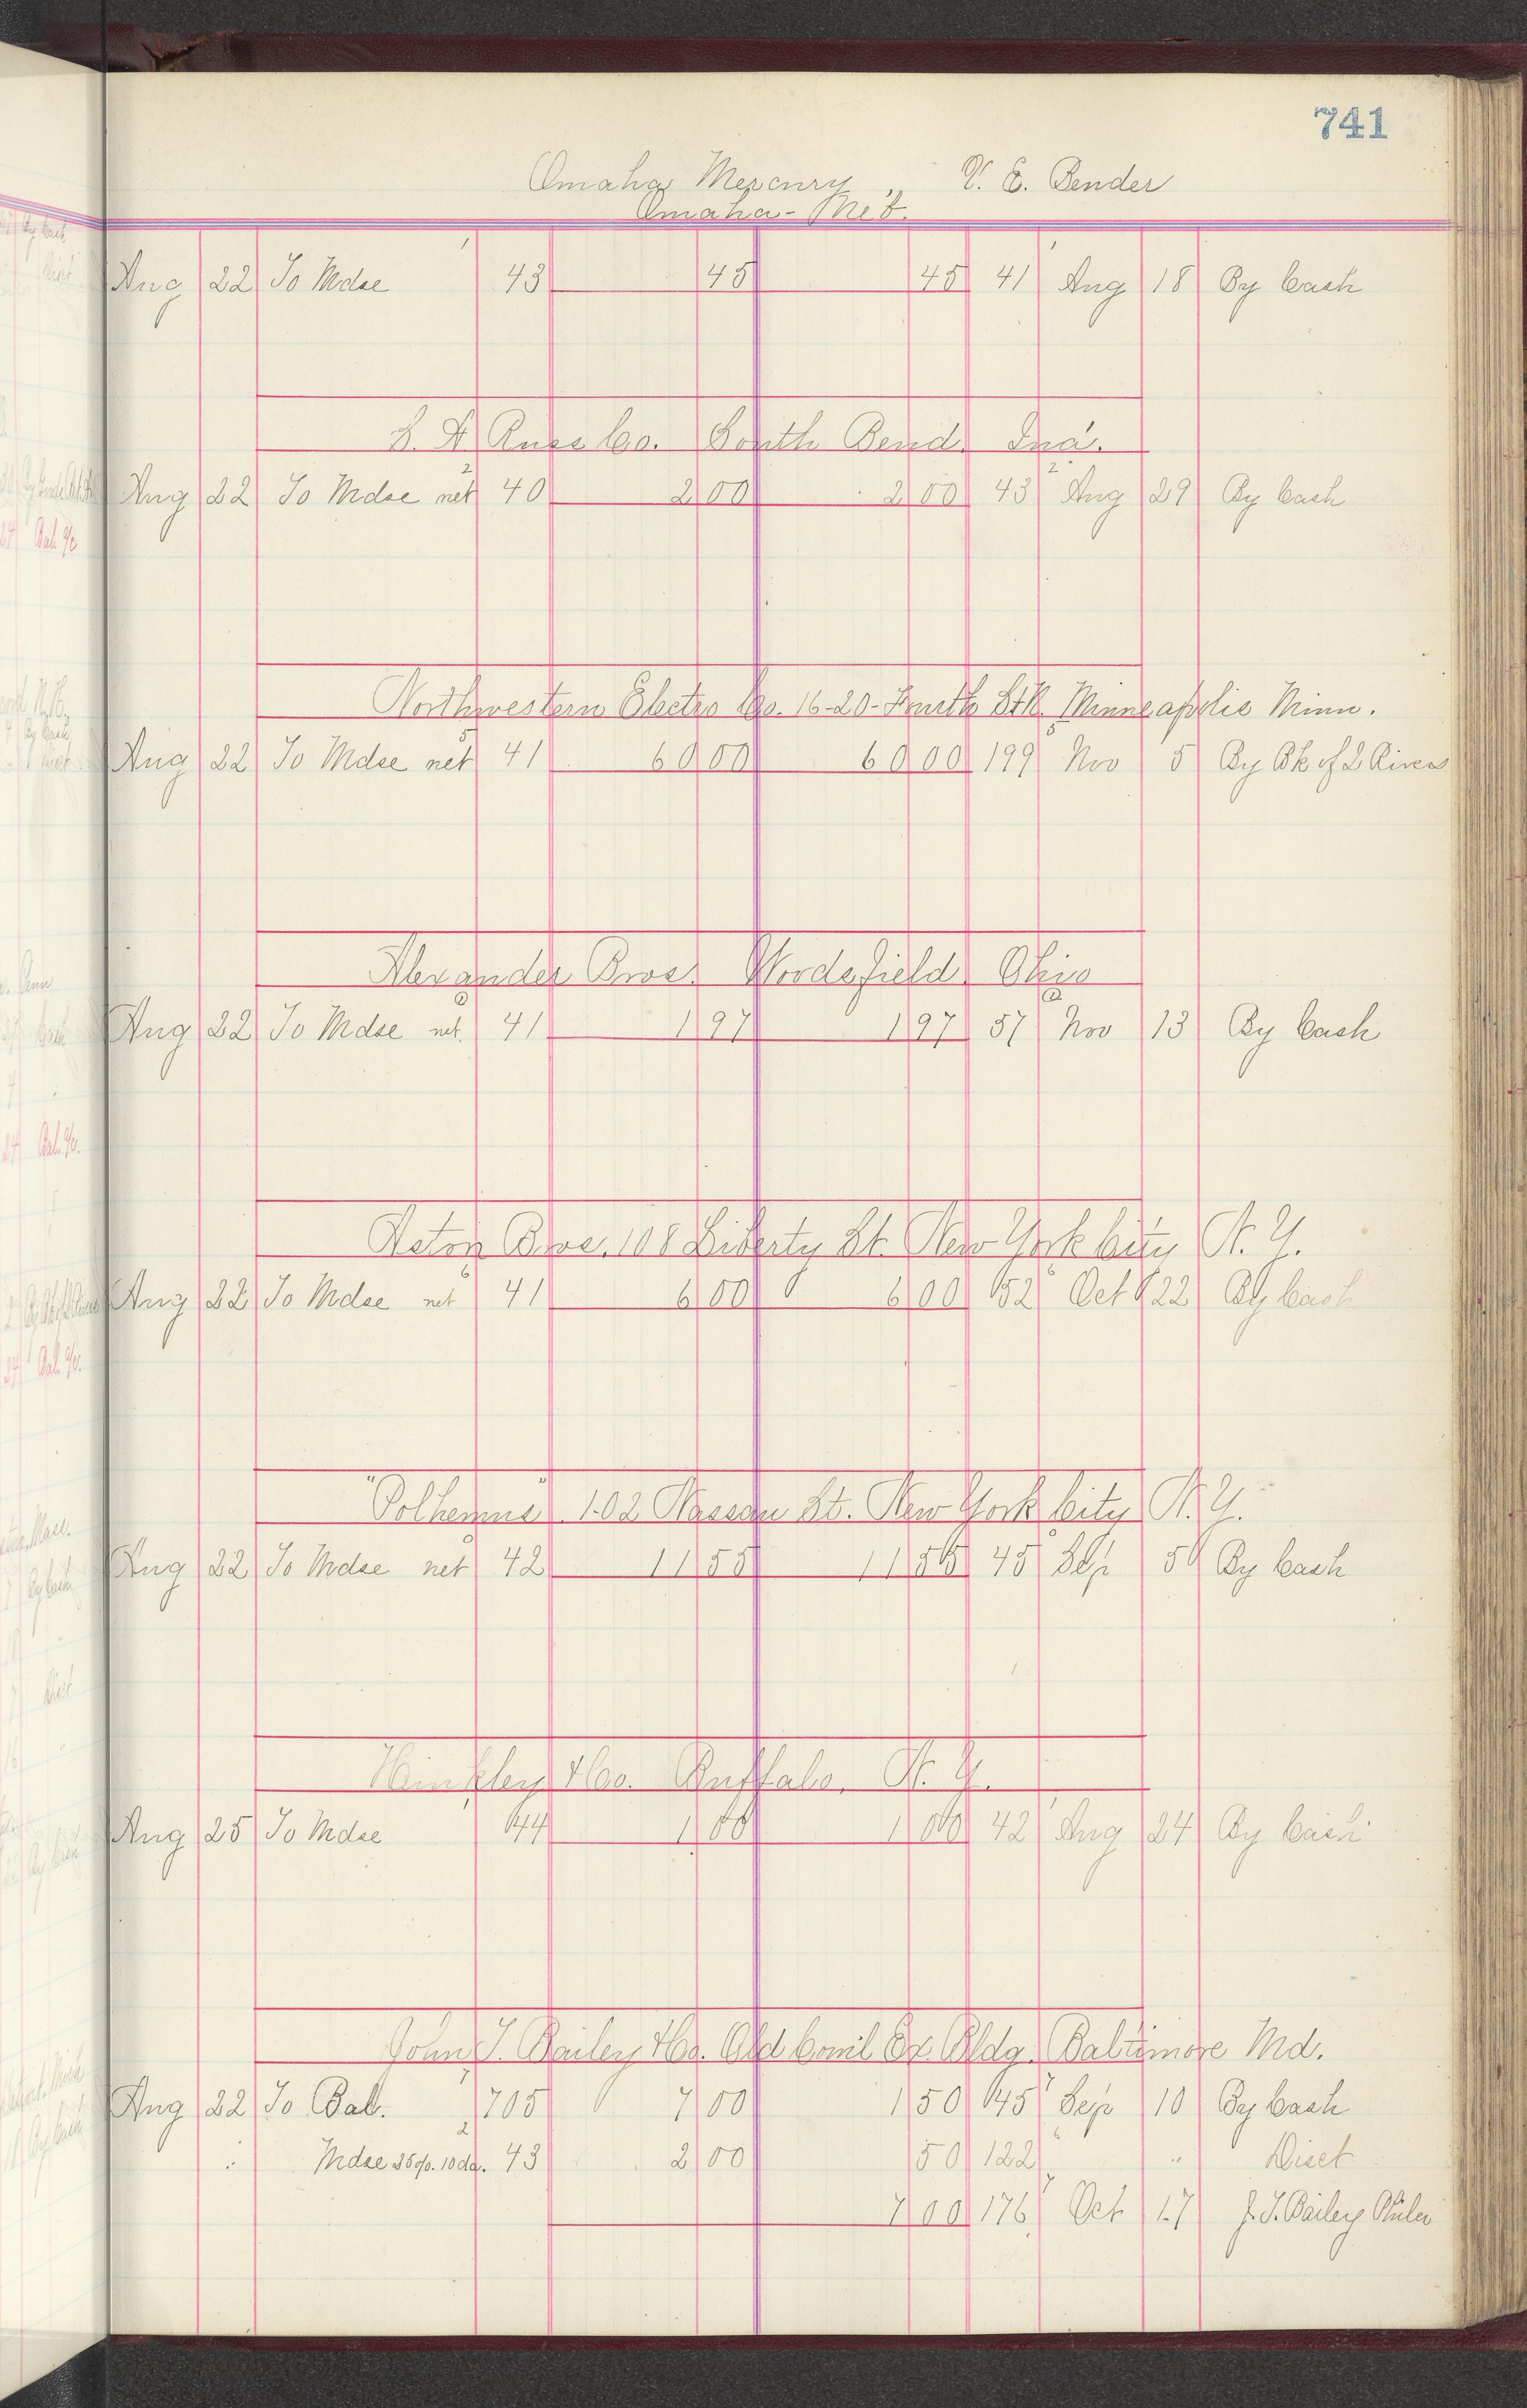 741
Omaha Mercury „ V. E. Bender
Omaha - Neb.
Aug 22 To Mdse 43 45 45 41 Aug 18 By Cash
Co. South Bend, Ind.
Aug 22 To Mdse net 40 2 00 2 00 43 Aug 29 By Cash
Northwestern Electro Co. 16-20- Fourth St N. Minneapolis Minn.
Aug 22 To Mdse net 41 60 00 60 00 199 Nov 5 By Bk of 2 Rivers
Alexander Bros. Woodsfield, Ohio
Aug 22 To Mdse net. 41 1 97 1 97 57 Nov 13 By Cash
Bros. 108 Liberty St. New York City N. Y.
Aug 22 To Mdse net 41 6 00 6 00 52 Oct 22 By Cash
"Polhemus" 102 Nassau St. New York City N. Y.
Aug 22 To Mdse net 42 11 55 11 55 45 Sep 5 By Cash
Hinkley & Co. Buffalo, N. Y.
Aug 25 To Mdse 44 1 00 1 00 42 Aug 24 By Cash
John T. Bailey & Co. Old Coml Ex. Bldg. Baltimore Md.
Aug 22 To Bal. 705 7 00 1 50 45 Sep 10 By Cash
" Mdse 25% 10 da. 43 2 00 50 122 " Disct
7 00 176 Oct 17 J. T. Bailey Phila